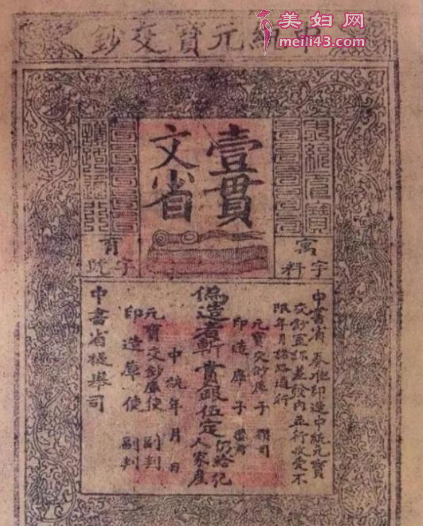 美妇网
meili43.com
中統元寶交鈔
壹貫
文省
字料
字號
中書省奏准印造中統元寶
交鈔宣課差發內並行收受不
限年月諸路通行
元寶交鈔庫子
印造庫子
偽造者斬賞銀伍定
仍給犯
人家產
中統年月日
元寶交鈔庫使副判
印造庫使副判
中書省提舉司